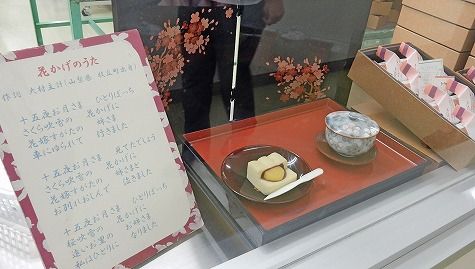 花かげのうた
作詞 大村主計(山梨県 牧丘町出身)
十五夜お月さま ひとりぼっち
さくら吹雪の 花かげに
花嫁すがたの 姉さま
車にゆられて 行きました
十五夜お月さま 見てたでしょう
さくら吹雪の 花かげに
花嫁すがたの 姉さまと
お別れおしんで 泣きました
十五夜お月さま ひとりぼっち
桜吹雪の 花かげに
遠いお里の お姉さま
私はひとりに なりました